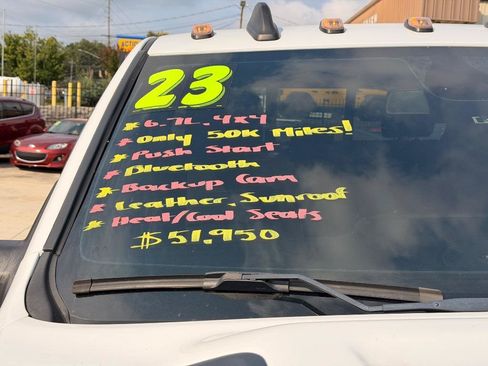 23
* 6.7L, 4x4
* Only 50K Miles!
* Push Start
* Bluetooth
* Backup Cam
* Leather, Sunroof
* Heat/Cool Seats
$51,950